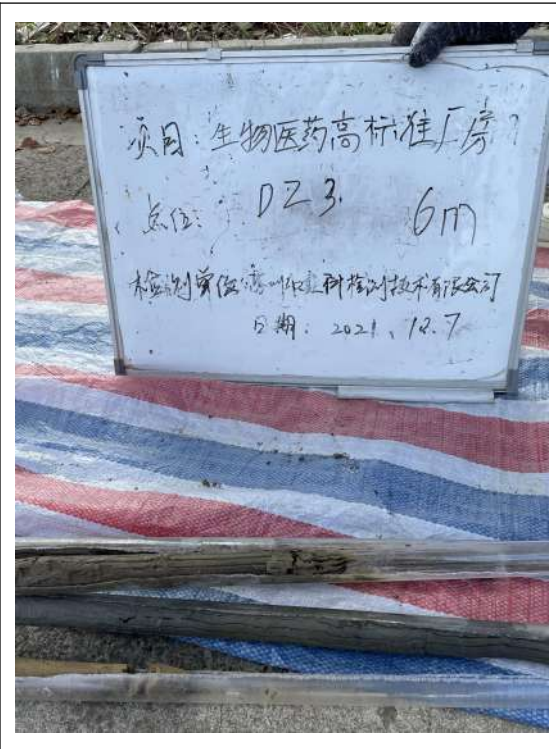 项目:生物医药高标准厂房
点位: DZ3. 6m
检测单位:科检测技术有限公司
日期: 2021.12.7